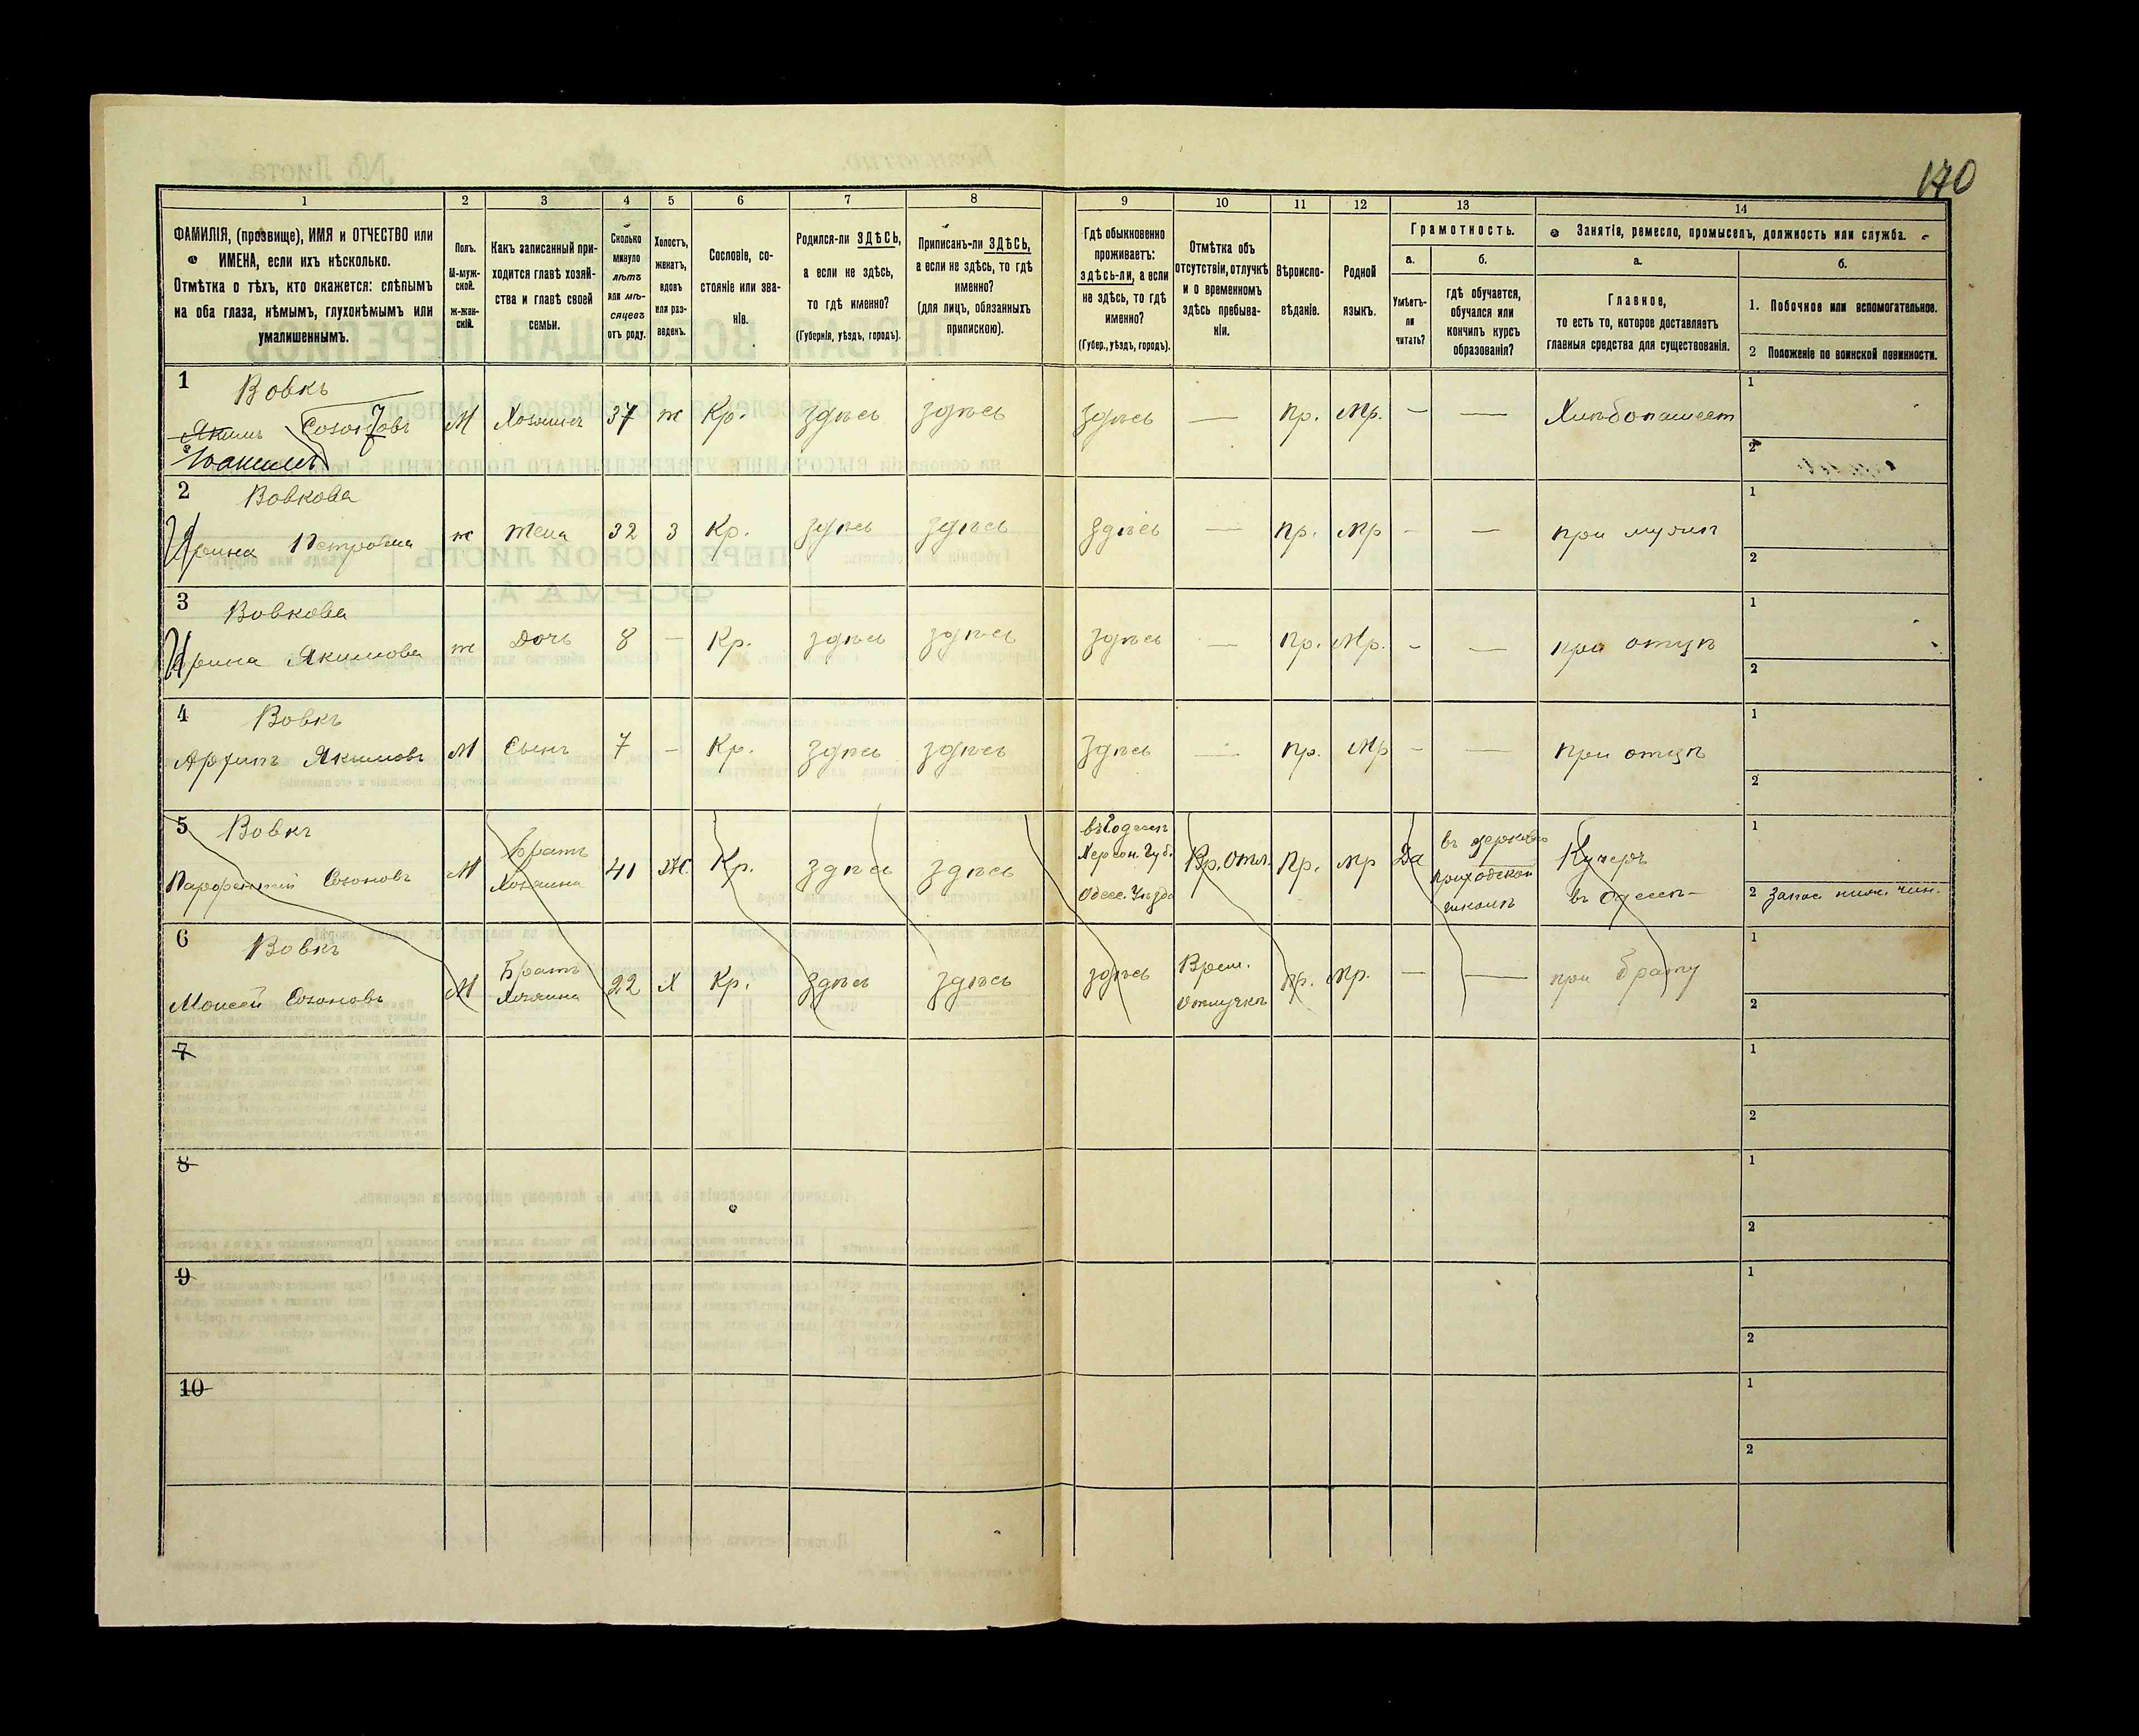 170
1
2
3
4
5
6
7
8
9
10
11
12
13
14
ФАМИЛІЯ, (прозвище), ИМЯ и ОТЧЕСТВО или
ИМЕНА, если ихъ нѣсколько.
Отмѣтка о тѣхъ, кто окажется: слѣпымъ
на оба глаза, нѣмымъ, глухонѣмымъ или
умалишеннымъ.
Полъ.
М-муж-
ской.
ж-жен-
скій.
Какъ записанный при-
ходится главѣ хозяй-
ства и главѣ своей
семьи.
Сколько
минуло
лѣтъ
или мѣ-
сяцевъ
отъ роду.
Холостъ,
женатъ,
вдовъ
или раз-
веденъ.
Сословіе, со-
стояніе или зва-
ніе.
Родился-ли ЗДѢСЬ,
а если не здѣсь,
то гдѣ именно?
(Губернія, уѣздъ, городъ).
Приписанъ-ли ЗДѢСЬ,
а если не здѣсь, то гдѣ
именно?
(для лицъ, обязанныхъ
припискою).
Гдѣ обыкновенно
проживаетъ:
здѣсь-ли, а если
не здѣсь, то гдѣ
именно?
(Губер., уѣздъ, городъ).
Отмѣтка объ
отсутствіи, отлучкѣ
и о временномъ
здѣсь пребыва-
ніи.
Вѣроиспо-
вѣданіе.
Родной
языкъ.
Грамотность.
а.
Умѣетъ-
ли
читать?
б.
гдѣ обучается,
обучался или
кончилъ курсъ
образованія?
Занятія, ремесло, промыселъ, должность или служба.
а.
Главное,
то есть то, которое доставляетъ
главныя средства для существованія.
б.
1. Побочное или вспомогательное.
2 Положеніе по воинской повинности.
1 Вовкъ
Якимъ
Іоакимъ
М Хозяинъ 37 ж Кр. здѣсь здѣсь здѣсь — Пр. Мр. — — Хлѣбопашест
1
2
2 Вовкова
Ирина Петровна ж Жена 32 З Кр. здѣсь здѣсь здѣсь — Пр. Мр - — при мужѣ
1
2
3 Вовкова
Ирина Якимова ж Дочь 8 — Кр. здѣсь здѣсь здѣсь — Пр. Мр. - — при отцѣ
1
2
4 Вовкъ
Якимовъ М Сынъ 7 - Кр. здѣсь здѣсь здѣсь — Пр. Мр - — при отцѣ
1
2
5 Вовкъ
Созоновъ М Братъ
Хозяина
41 Ж. Кр. здѣсь здѣсь
Херсон. Губ.
Одесс. Уѣзда
Вр. Отл. Пр. Мр Да
въ церковно
приходской
школѣ
Кучеръ
въ Одессѣ -
1
2 Запас. нижн. чин.
6 Вовкъ
Моисей Созоновъ М Братъ
Хозяина
22 Х Кр. здѣсь здѣсь здѣсь
Врем.
Отлучкѣ
Пр. Мр. — — при брату
1
2
7
1
2
8
1
2
9
1
2
10
1
2